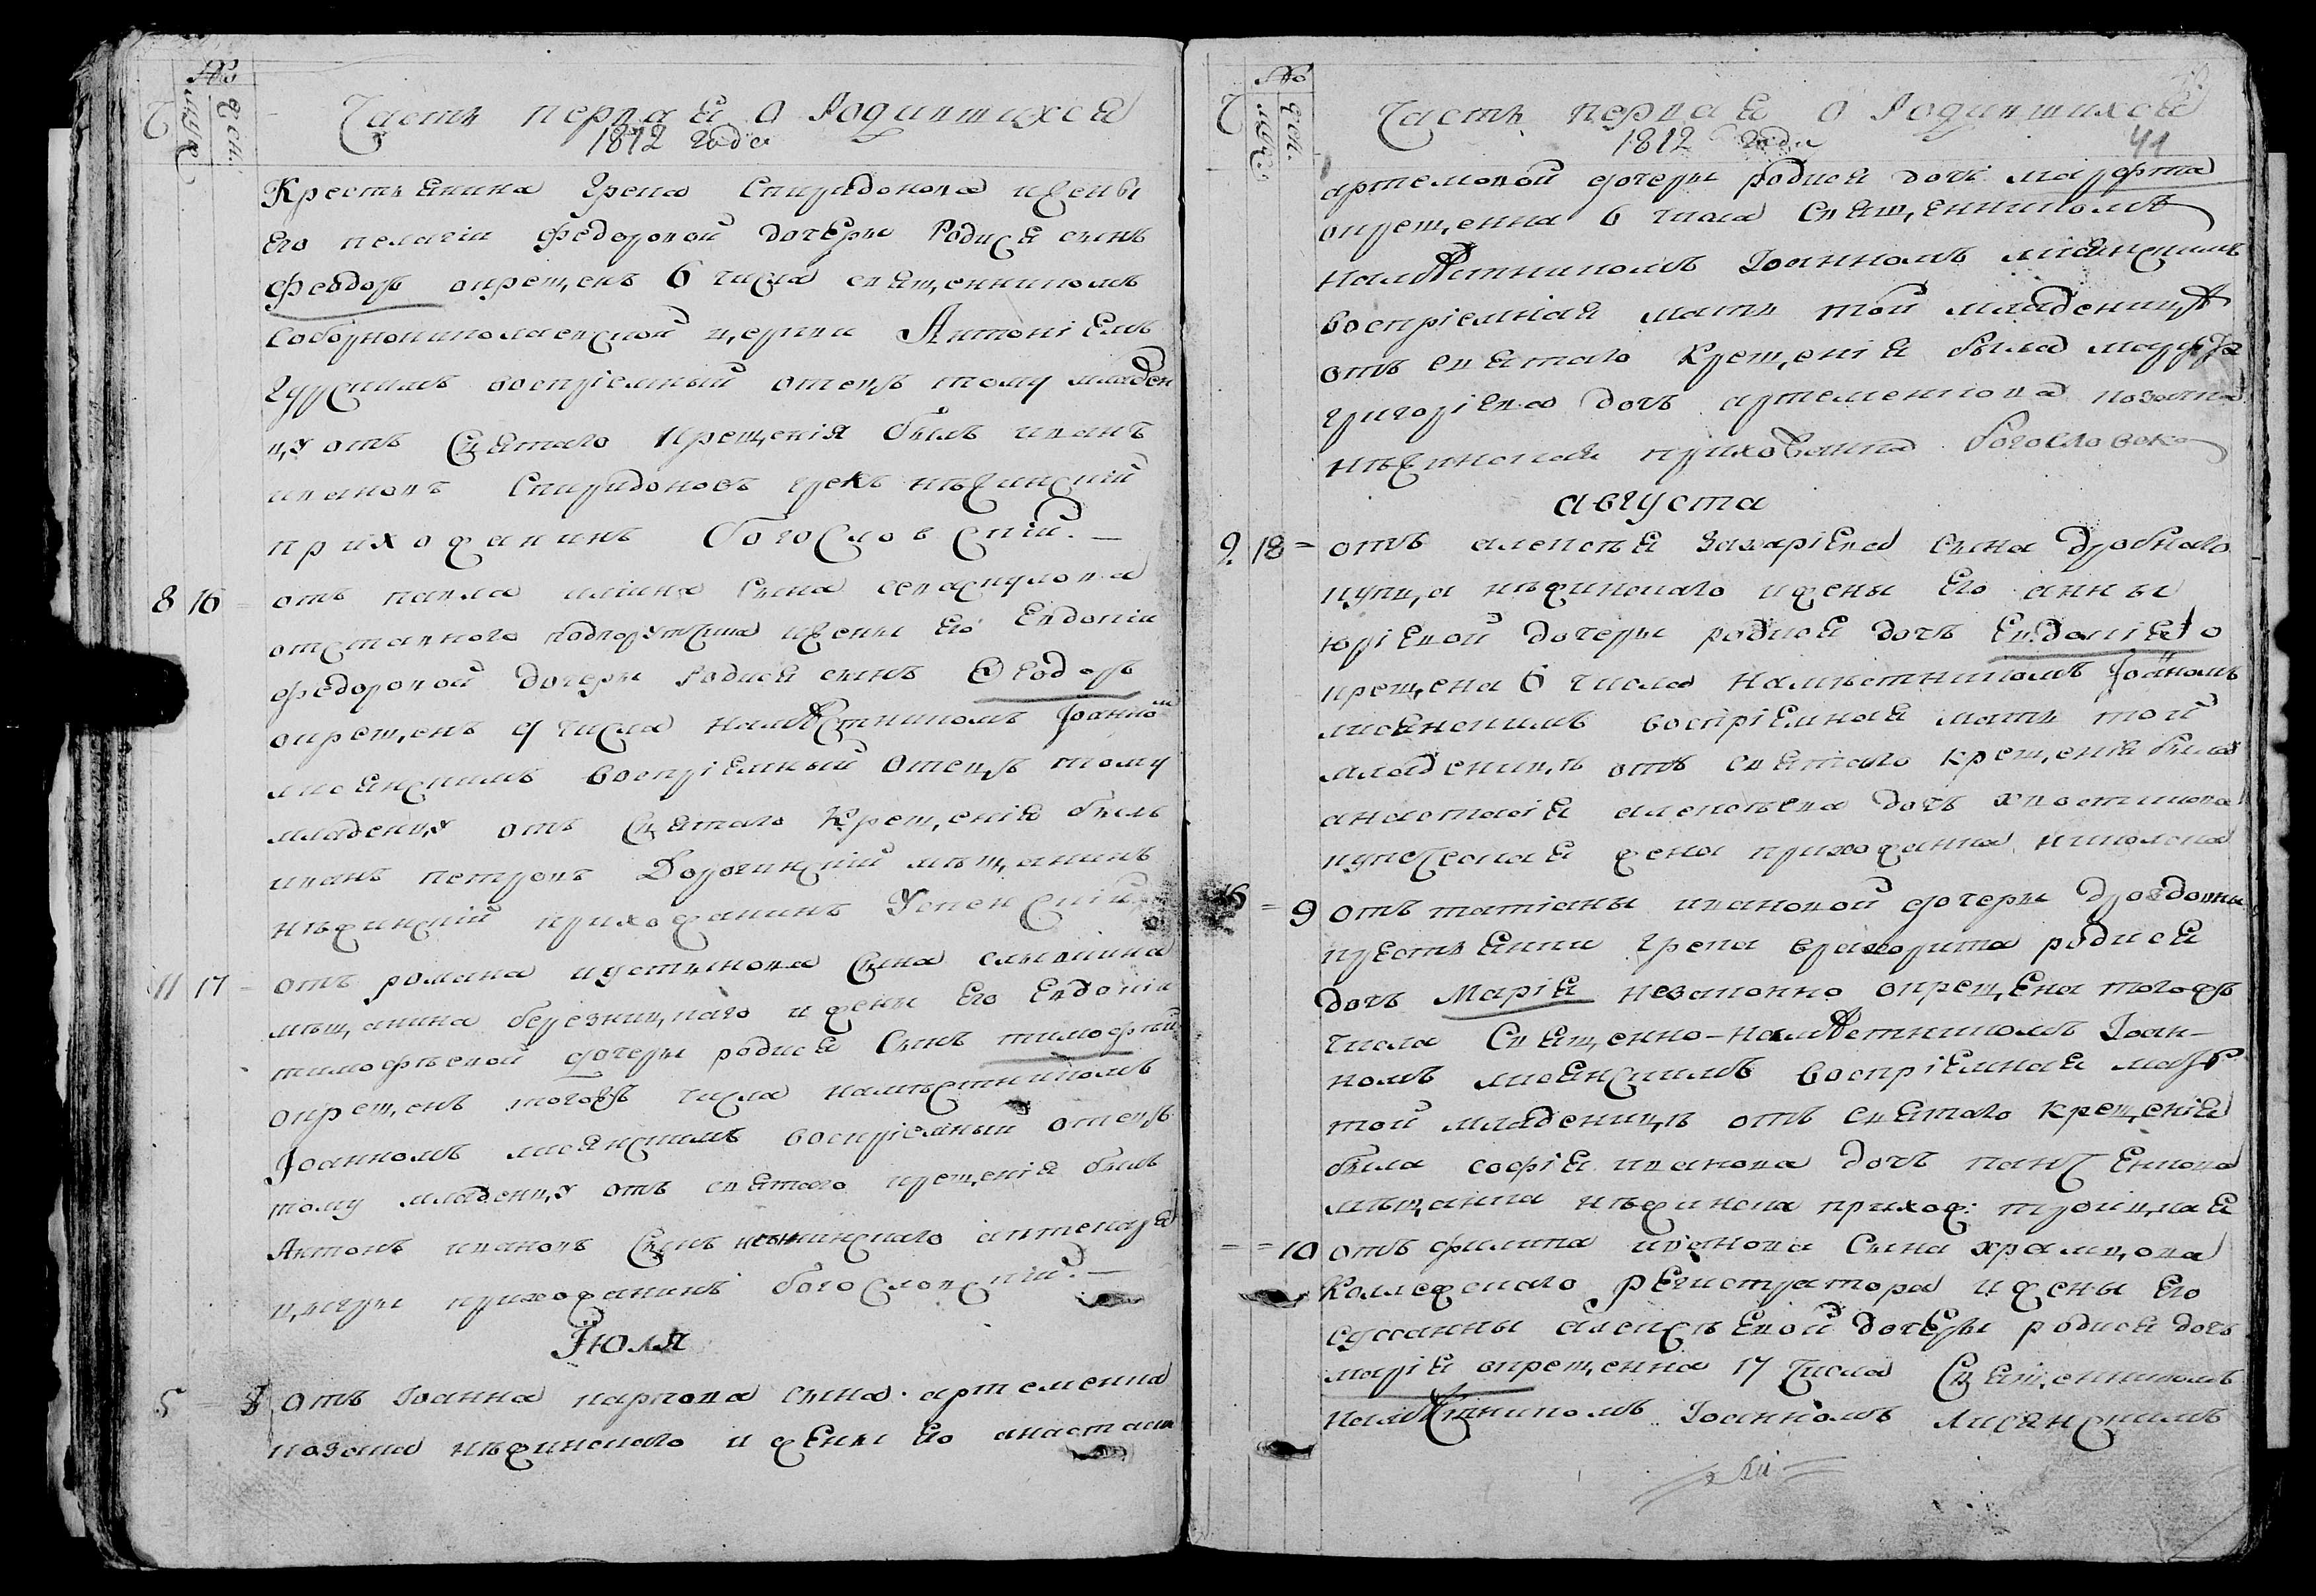 Часть первая о Родившихся
1812 года
Крестьянина Грека Спиридонова ижены
Его пелагіи Федоровой дочеры Родися сынъ
Феодоръ окрещенъ 6 числа священникомъ
Соборнониколаевской церкви Антоніемъ
воспріемный отецъ тому младен
цу отъ Святаго Крещенія былъ иванъ
ивановъ Спиридоновъ грекъ нѣжинскій
прихожанинъ богословскій. —
8 16 отъ павла иліина Сына
отставного ижены Его Евдокіи
федоровой дочеры Родися сынъ Ѳеодоръ
окрещенъ 9 числа намѣстникомъ Іоанномъ
лисянскимъ воспріемный отецъ тому
младенцу отъ Святаго Крещенія былъ
иванъ петровъ Дорогинскій мѣщанинъ
нѣжинскій прихожанинъ Успенскій
11 17 отъ романа Сына
мѣщанина ижены Его Евдокіи
тимофѣевой дочеры родися Сынъ тимофѣй
окрещенъ тогожъ числа намѣстникомъ
Іоанномъ лисянскимъ воспріемный отецъ
тому младенцу отъ святаго крещенія былъ
Антонъ ивановъ Сынъ аптекаря
прихожанинъ богословскій. —
Іюля
5 = 8 Отъ Іоанна карпова сына артеменка
козака нѣжинскаго и жены Его анастасіи
№
Часть первая о Родившихся
1812 года
41
артемовой дочеры родися дочь марфа
окрещенна 6 числа Священникомъ
намѣстникомъ Іоанномъ лисянскимъ
воспріемная мать той младеницѣ
отъ святаго Крещенія была марфа
григоріева дочь артеменкова козачка
нѣжинская прихожанка богословска
августа
2 18 = отъ алексѣя захаріева сына
купца нѣжинскаго ижены Его анны
юріевой дочеры родися дочь Евдокія о
крещена 6 числа намѣстникомъ Іоаномъ
лисянскимъ воспріемная мать той
младеницѣ отъ святаго крещенія была
анастасія алексѣева дочь хвостикова
купеческая жена прихожанка николска
16 = 9 отъ татіаны ивановой дочеры
крестьянки Грека родися
дочь Марія незаконно окрещена тогожъ
числа Священно-намѣстникомъ Іоан-
номъ лисянскимъ воспріемная мать
той младеницѣ отъ святаго крещенія
была софія иванова дочь
мѣщанка нѣжинска прихож: троицкая
= = 10 отъ филипа иванова Сына храмцова
Коллежскаго регистратора и жены Его
сусанны алексѣевой дочеры родися дочь
марія окрещенна 17 числа Священникомъ
намѣстникомъ Іоанномъ Лисянскимъ